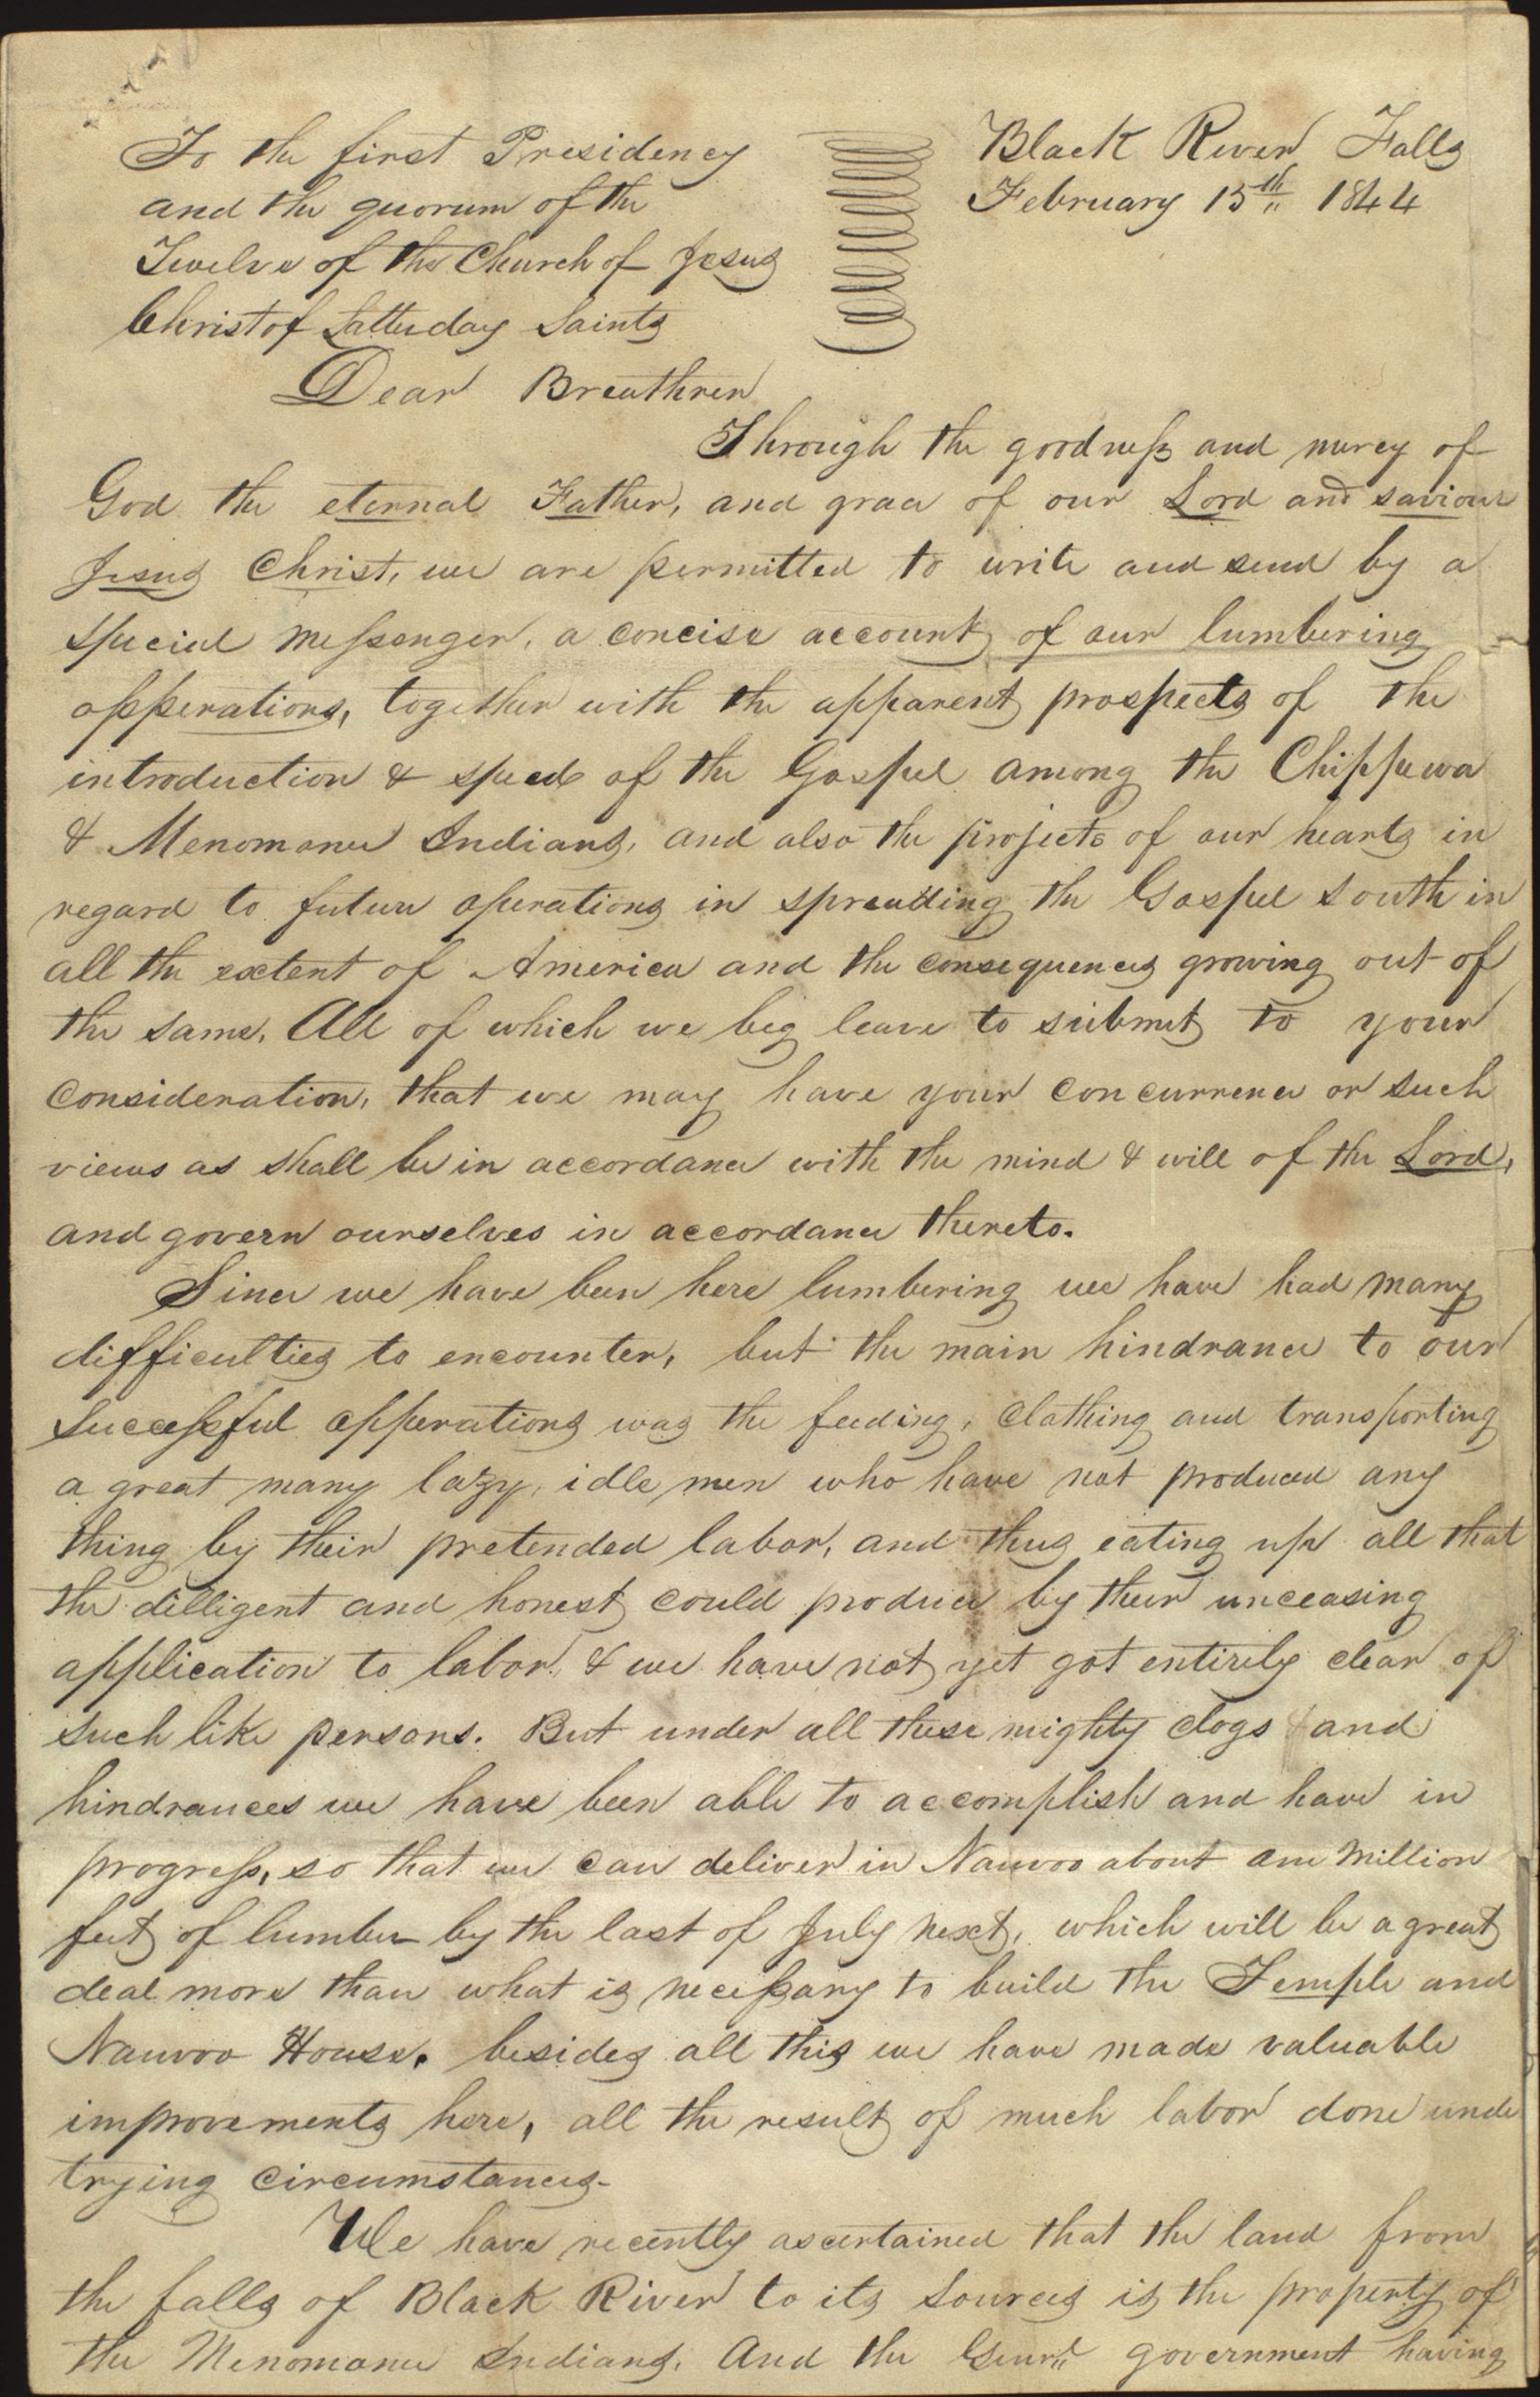 To the first Presidency
and the quorum of the
Twelve of the Church of Jesus
Christ of Latterday Saints
Black River Falls
February 15th 1844
Dear Breathren
Through the goodness and mercy of
God the eternal Father, and grace of our Lord and saviour
Jesus Christ, we are permitted to write and send by a
special messenger, a concise account of our lumbering
opperations, together with the apparent prospects of the
introduction & spred of the Gospel among the Chippewa
& Menomanee Indians, and also the projects of our hearts in
regard to future operations in spreading the Gospel south in
all the extent of America and the consequences growing out of
the same. All of which we beg leave to submit to your
consideration, that we may have your concurrence or such
views as shall be in accordance with the mind & will of the Lord,
and govern ourselves in accordance thereto.
Since we have been here lumbering we have had many
difficulties to encounter, but the main hindrance to our
successful opperations was the feeding, clothing and transporting
a great many lazy, idle men who have not produced any
thing by their pretended labor, and thus eating up all that
the dilligent and honest could produce by their unceasing
application to labor, & we have not yet got entirely clear of
such like persons. But under all these mighty clogs and
hindrances we have been able to accomplish and have in
progress, so that we can deliver in Nauvoo about one million
feet of lumber by the last of July next, which will be a great
deal more than what is necessary to build the Temple and
Nauvoo House. besides all this we have made valuable
improvements here, all the result of much labor done unde
trying circumstances-
We have recently ascertained that the land from
the falls of Black River to its sources is the property of
the Menomanee Indians. And the Genrl government having